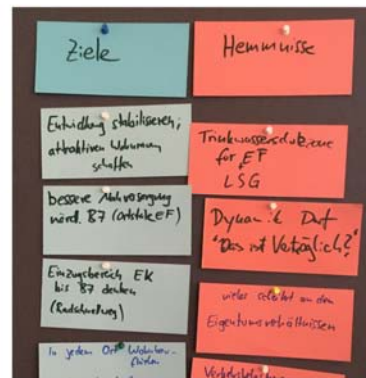 Ziele
Entwicklung stabilisieren,
attraktiven Wohnraum
schaffen
bessere Nahversorgung
nördl. B7 (Ortsteile EF)
Einzugsbereich EK
bis B7 denken
(Radschnellweg)
In jedem Ort
Hemmnisse
Trinkwasserschutzzone
für EF
LSG
Dynamik Dorf
"Das ist Verträglich?"
vieles scheitert an den
Eigentumsverhältnissen